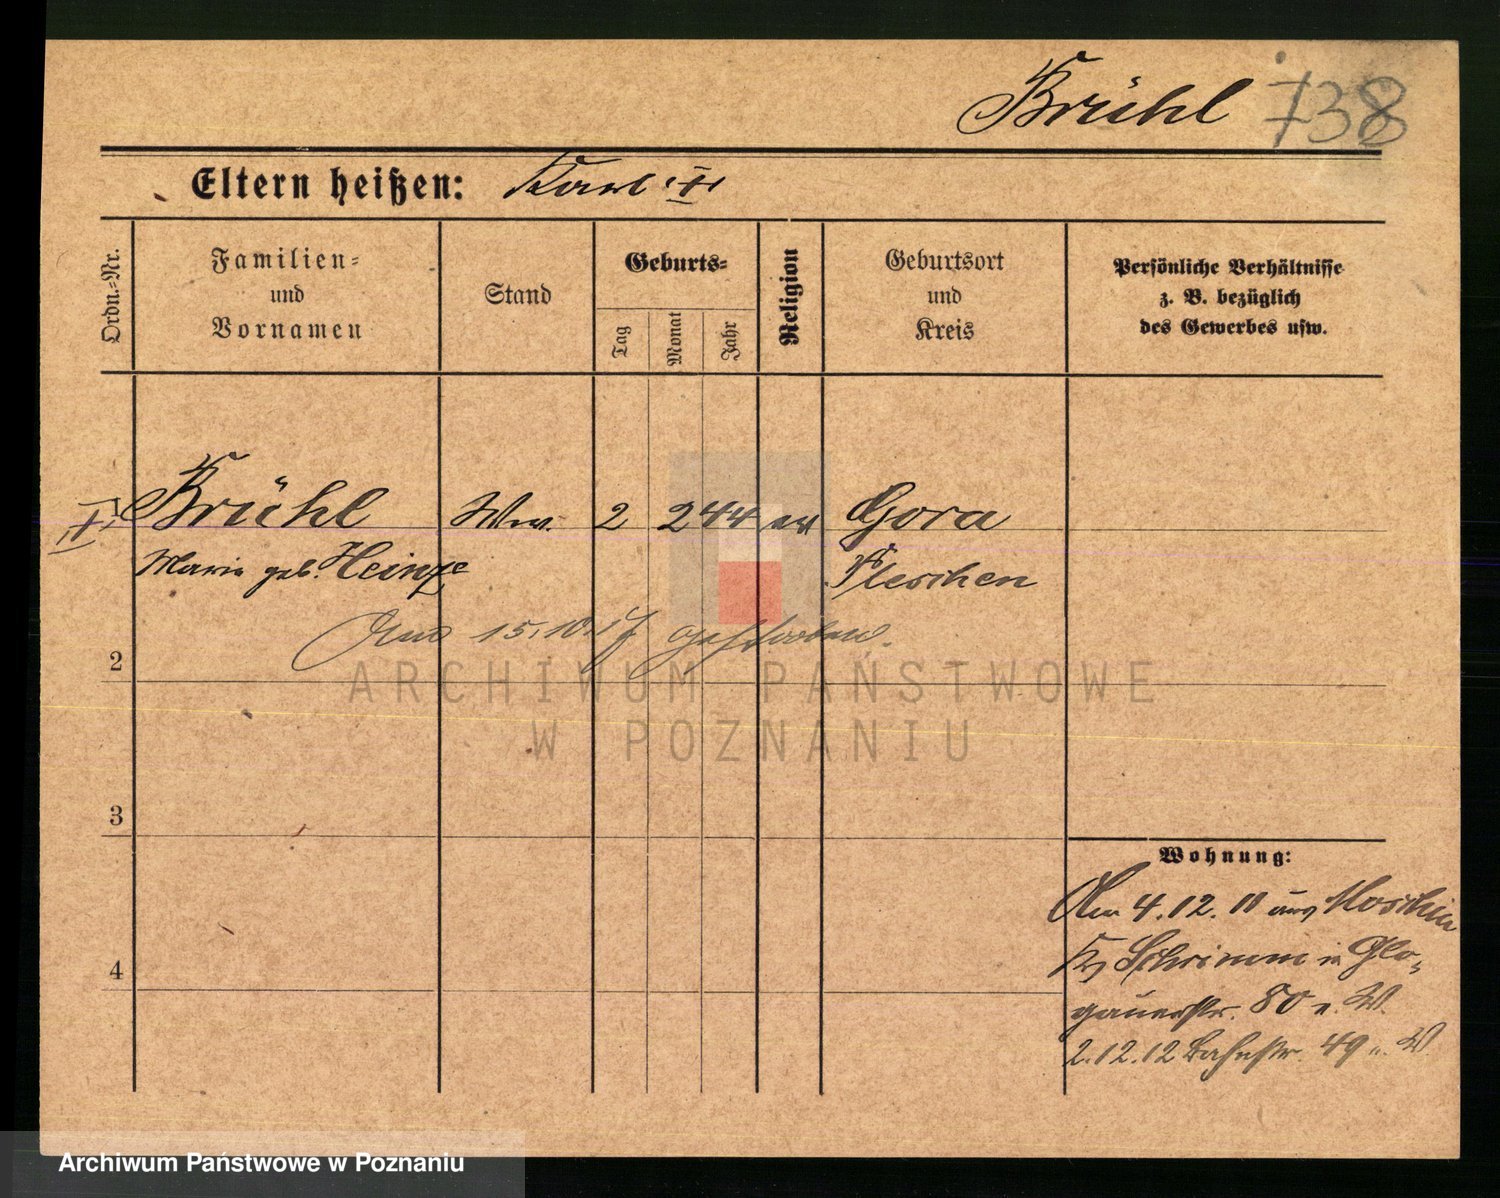 Brühl 738
Eltern heißen: Karl
Ordn.-Nr.
Familien-
und
Vornamen
Stand
Geburts-
Tag
Monat
Jahr
Religion
Geburtsort
und
Kreis
Persönliche Verhältnisse
z. B. bezüglich
des Gewerbes usw.
Brühl Ww. 2 2 44 ev Gora
Marie geb. Heinze Pleschen
Am 15.10.17 gestorben.
2
3
4
Wohnung:
Am 4.12.11 aus Moschin
Kr Schrimm in Glo-
gauerstr. 80 e. W.
2.12.12 Bahnstr. 49 W
ARCHIWUM PAŃSTWOWE
W POZNANIU
Archiwum Państwowe w Poznaniu